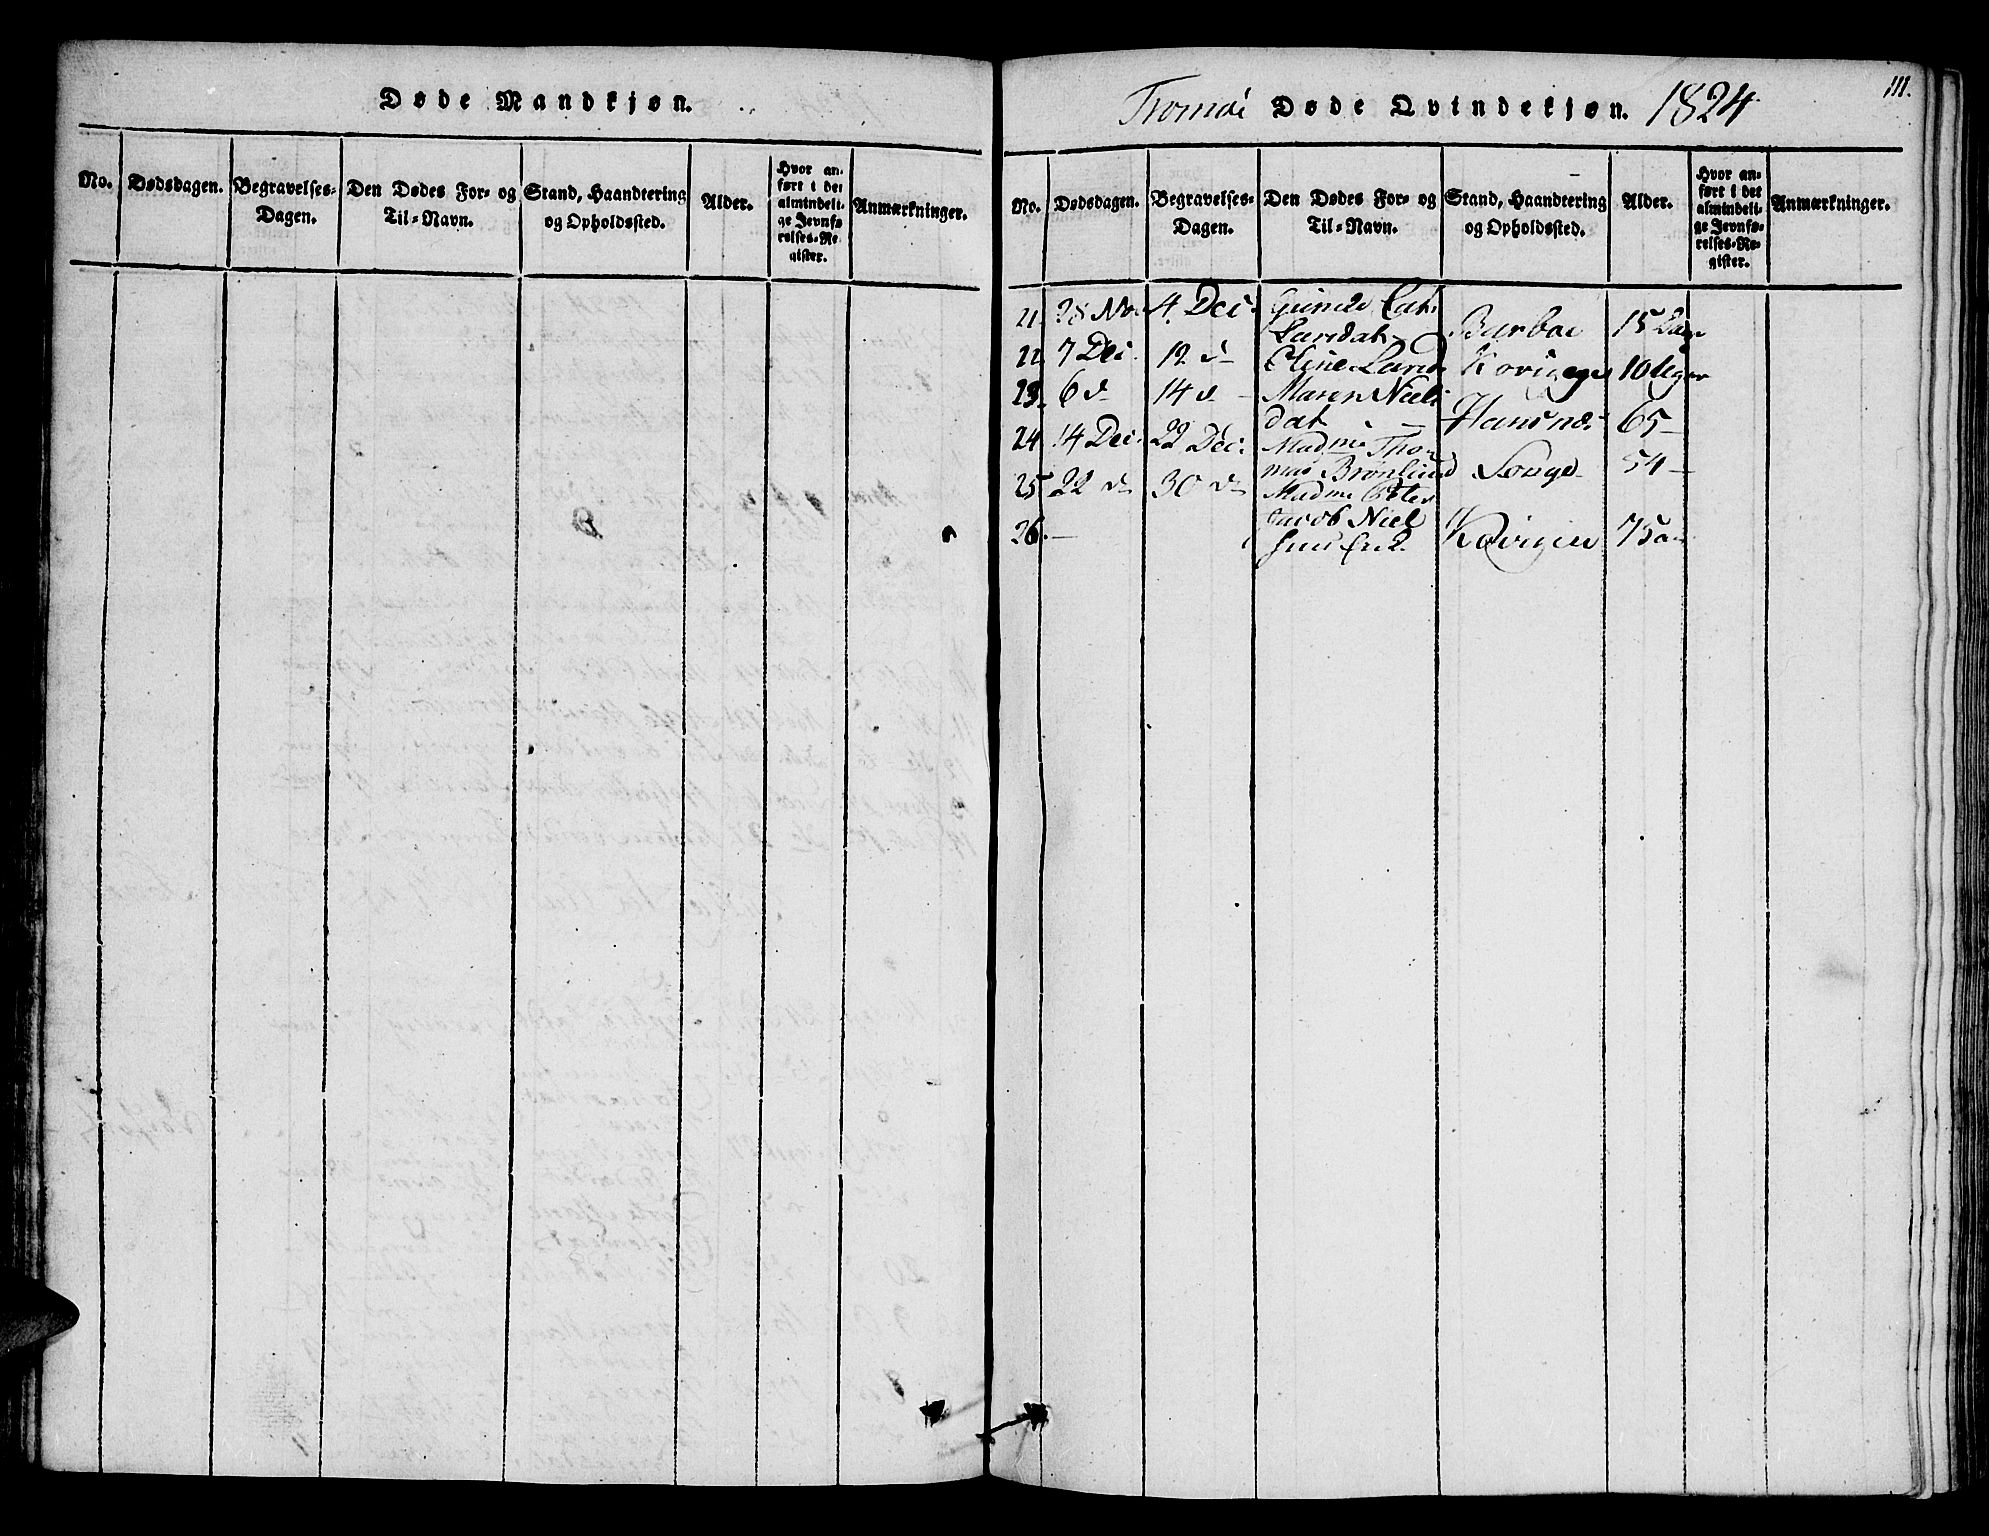 Døde Mandkjøn.
No.
Dødsdagen.
Begravelses-
Dagen.
Den Dødes For- og
Til-Navn.
Stand, Haandtering
og Opholdssted.
Alder.
Hvor an-
ført i det
almindeli-
ge Jevnfø-
relses-Re-
gister.
Anmærkninger.
Tromøe Døde Qvindekjøn. 1824
111.
No.
Dødsdagen.
Begravelses-
Dagen.
Den Dødes For- og
Til-Navn.
Stand, Haandtering
og Opholdssted.
Alder.
Hvor an-
ført i det
almindeli-
ge Jevnfø-
relses-Re-
gister.
Anmærkninger.
21. 28 Nov 4 Dec. Gunde Cat.
Larsdat. Barboe 15 Dage
22. 7 Dec. 12 d Eline Lars Kovigen 10 Uger
23. 6 d 14 d Maren Niels
dat Hansnæs 65
24 14 Dec. 22 Dec. Madme Tho-
mas Brønlund Songe 54
25 22 d 30 d Madme Peter
26. Jacob Niel
sens Enk. Kovigen 75 aa